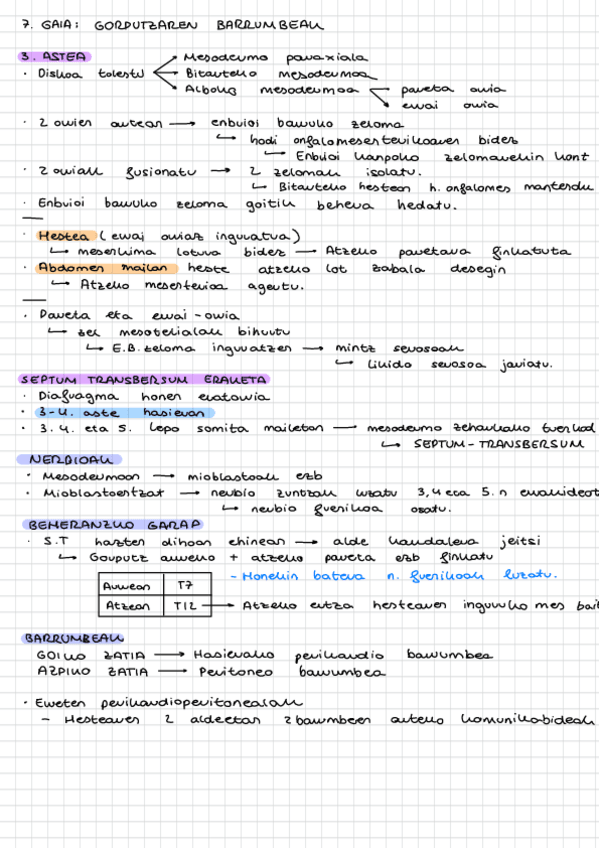 7. GAIA: GORPUTZAREN BARRUMBEAK
3. ASTEA → Mesodermo paraxiala
· Diskoa tolestu → Bitarteko mesodermoa
→ Alboko mesodermoa → pareta orria
→ errai orria
· 2 orrien artean → enbrioi barruko zeloma
↳ hodi onfalomesenterikoaren bidez
↳ Enbrioi kanpoko zelomarekin kont
· 2 orriak fusionatu → 2 zelomak isolatu.
↳ Bitarteko hestean h. onfalomes mantendu
· Enbrioi barruko zeloma goitik behera hedatu.
· Hestea (errai orriaz inguratua)
↳ meserkima lotura bidez → Atzeko paretara finkatuta
· Abdomen mailan heste atzeko lot zabala desegin
↳ Atzeko mesenterioa agertu.
· Pareta eta errai-orria
↳ zel mesotelialak bihurtu
↳ E.B. zeloma inguratzen → mintz serosoak
↳ Likido serosoa jariatu.
SEPTUM TRANSBERSUM ERAKETA
· Diafragma honen eratorria
· 3-4. aste hasieran
· 3. 4. eta 5. lepo somita mailetan → mesodermo zeharkako
↳ SEPTUM-TRANSBERSUM
NERBIOAK
· Mesodermoan → mioblastoak erb
· Mioblastoentzat → neurbio zuntzak luzatu 3, 4 eta 5. n
↳ neurbio frenikoa osatu.
BEHERANZKO GARAP
· S.T hazten dihoan ehinean → alde kaudalera jeitsi
↳ Gorputz aurreko + atzeko pareta erb finkatu
Aurrean T7 - Honekin batera n. frenikoak luzatu.
Atzean T12 → Atzeko ertza hestearen inguruko mes
BARRUMBEAK
GOIKO ZATIA → Hasierako perikardio barrumbea
AZPIKO ZATIA → Peritoneo barrumbea
· Erreten perikardioperitonealak
- Hestearen 2 aldeetan 2 barrumbeen arteko komunikabideak